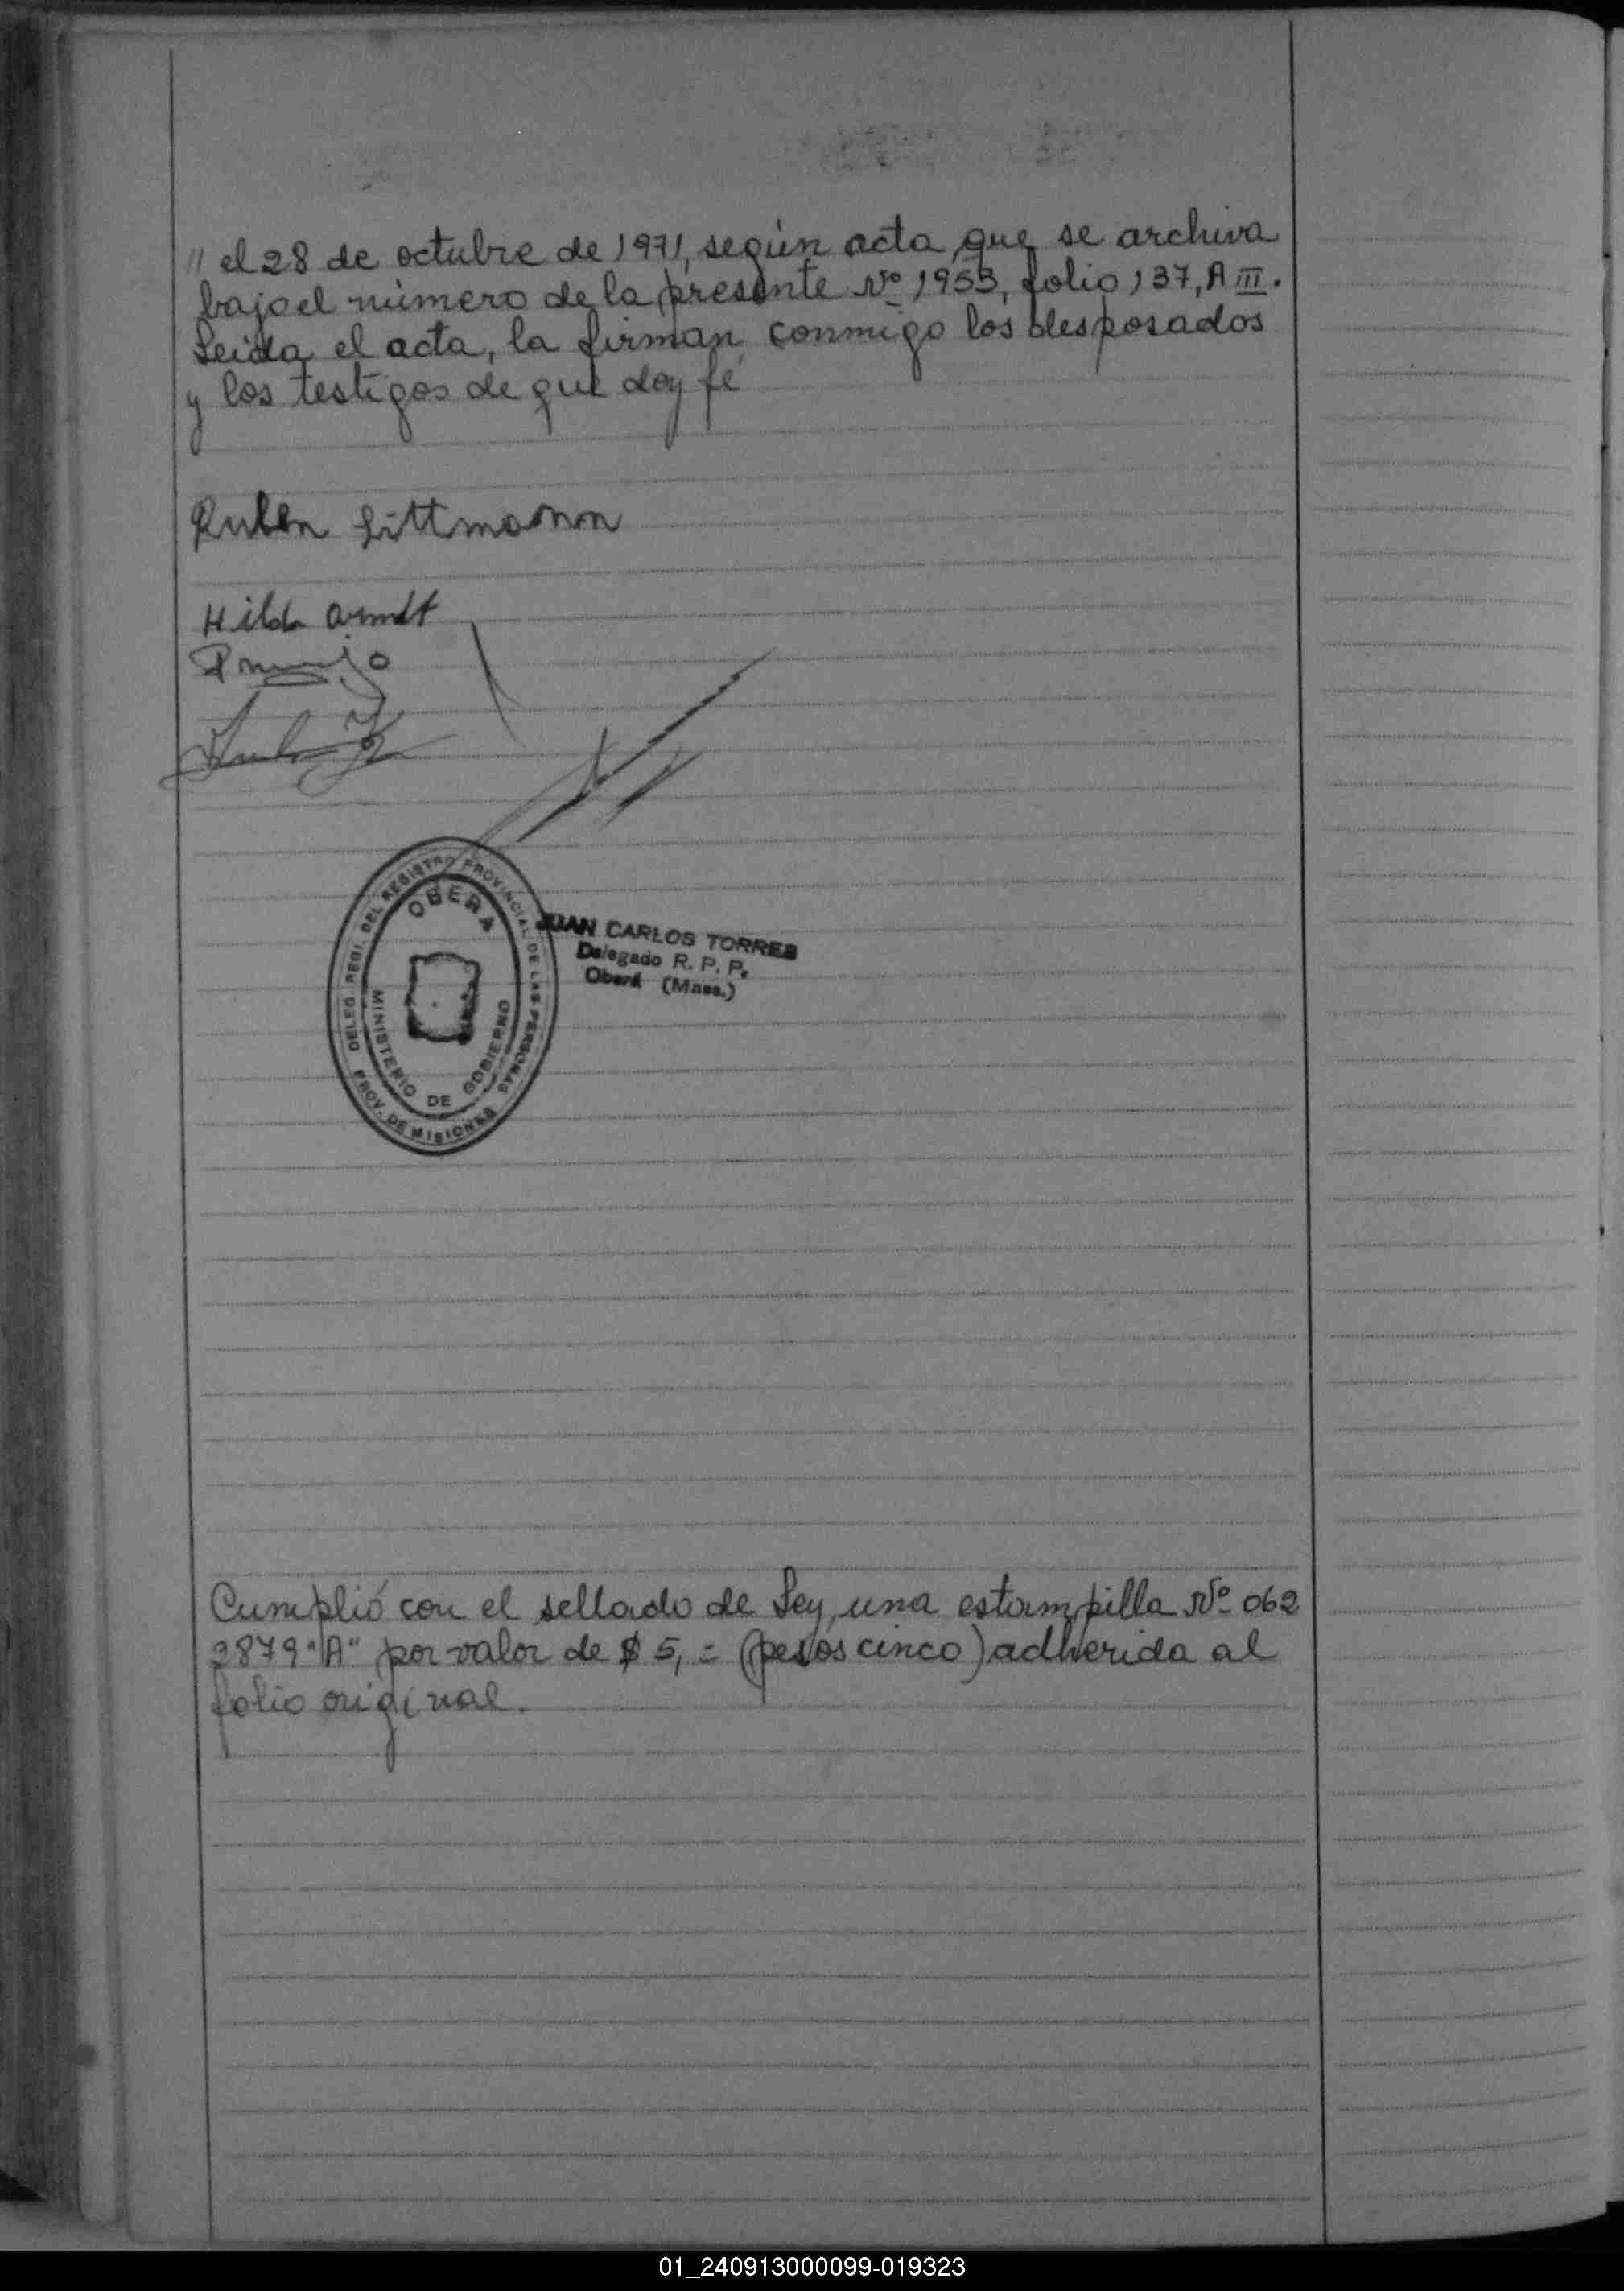 " el 28 de octubre de 1971, según acta que se archiva
bajo el número de la presente Nº 1953, folio 137, A III.
Leida el acta, la firman conmigo los desposados
y los testigos de que doy fé
Ruben Littmann
Hilda Arndt
DELEG. REGI. DEL REGISTRO PROVINCIAL DE LAS PERSONAS
OBERA
MINISTERIO DE GOBIERNO
PROV. DE MISIONES
JUAN CARLOS TORRES
Delegado R. P. P.
Oberá (Mnes.)
Cumplió con el sellado de Ley, una estampilla Nº 062
2879 "A" por valor de $ 5, = (pesos cinco) adherida al
folio original.
01_240913000099-019323